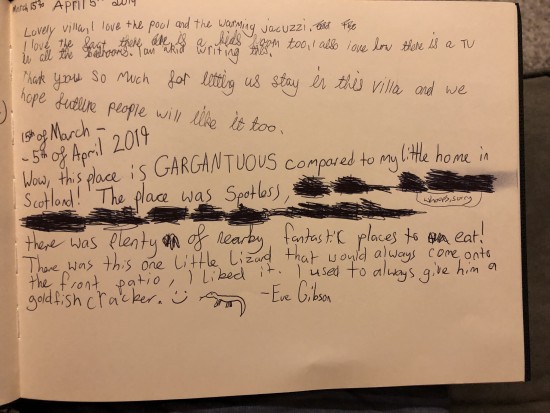 March 15th April 5th 2019
Lovely villa, I love the pool and the warming jacuzzi.
I love the fact there is a kids room too, I also love how there is a TV
in all the bedrooms. I am a kid writing this.
Thank you so much for letting us stay in this villa and we
hope future people will like it too.
15th of March –
– 5th of April 2019
Wow, this place is GARGANTUOUS compared to my little home in
Scotland! The place was Spotless,
whoops, sorry
there was plenty of nearby fantastic places to eat!
There was this one little Lizard that would always come onto
the front patio, I liked it. I used to always give him a
goldfish cracker. :)
–Eve Gibson